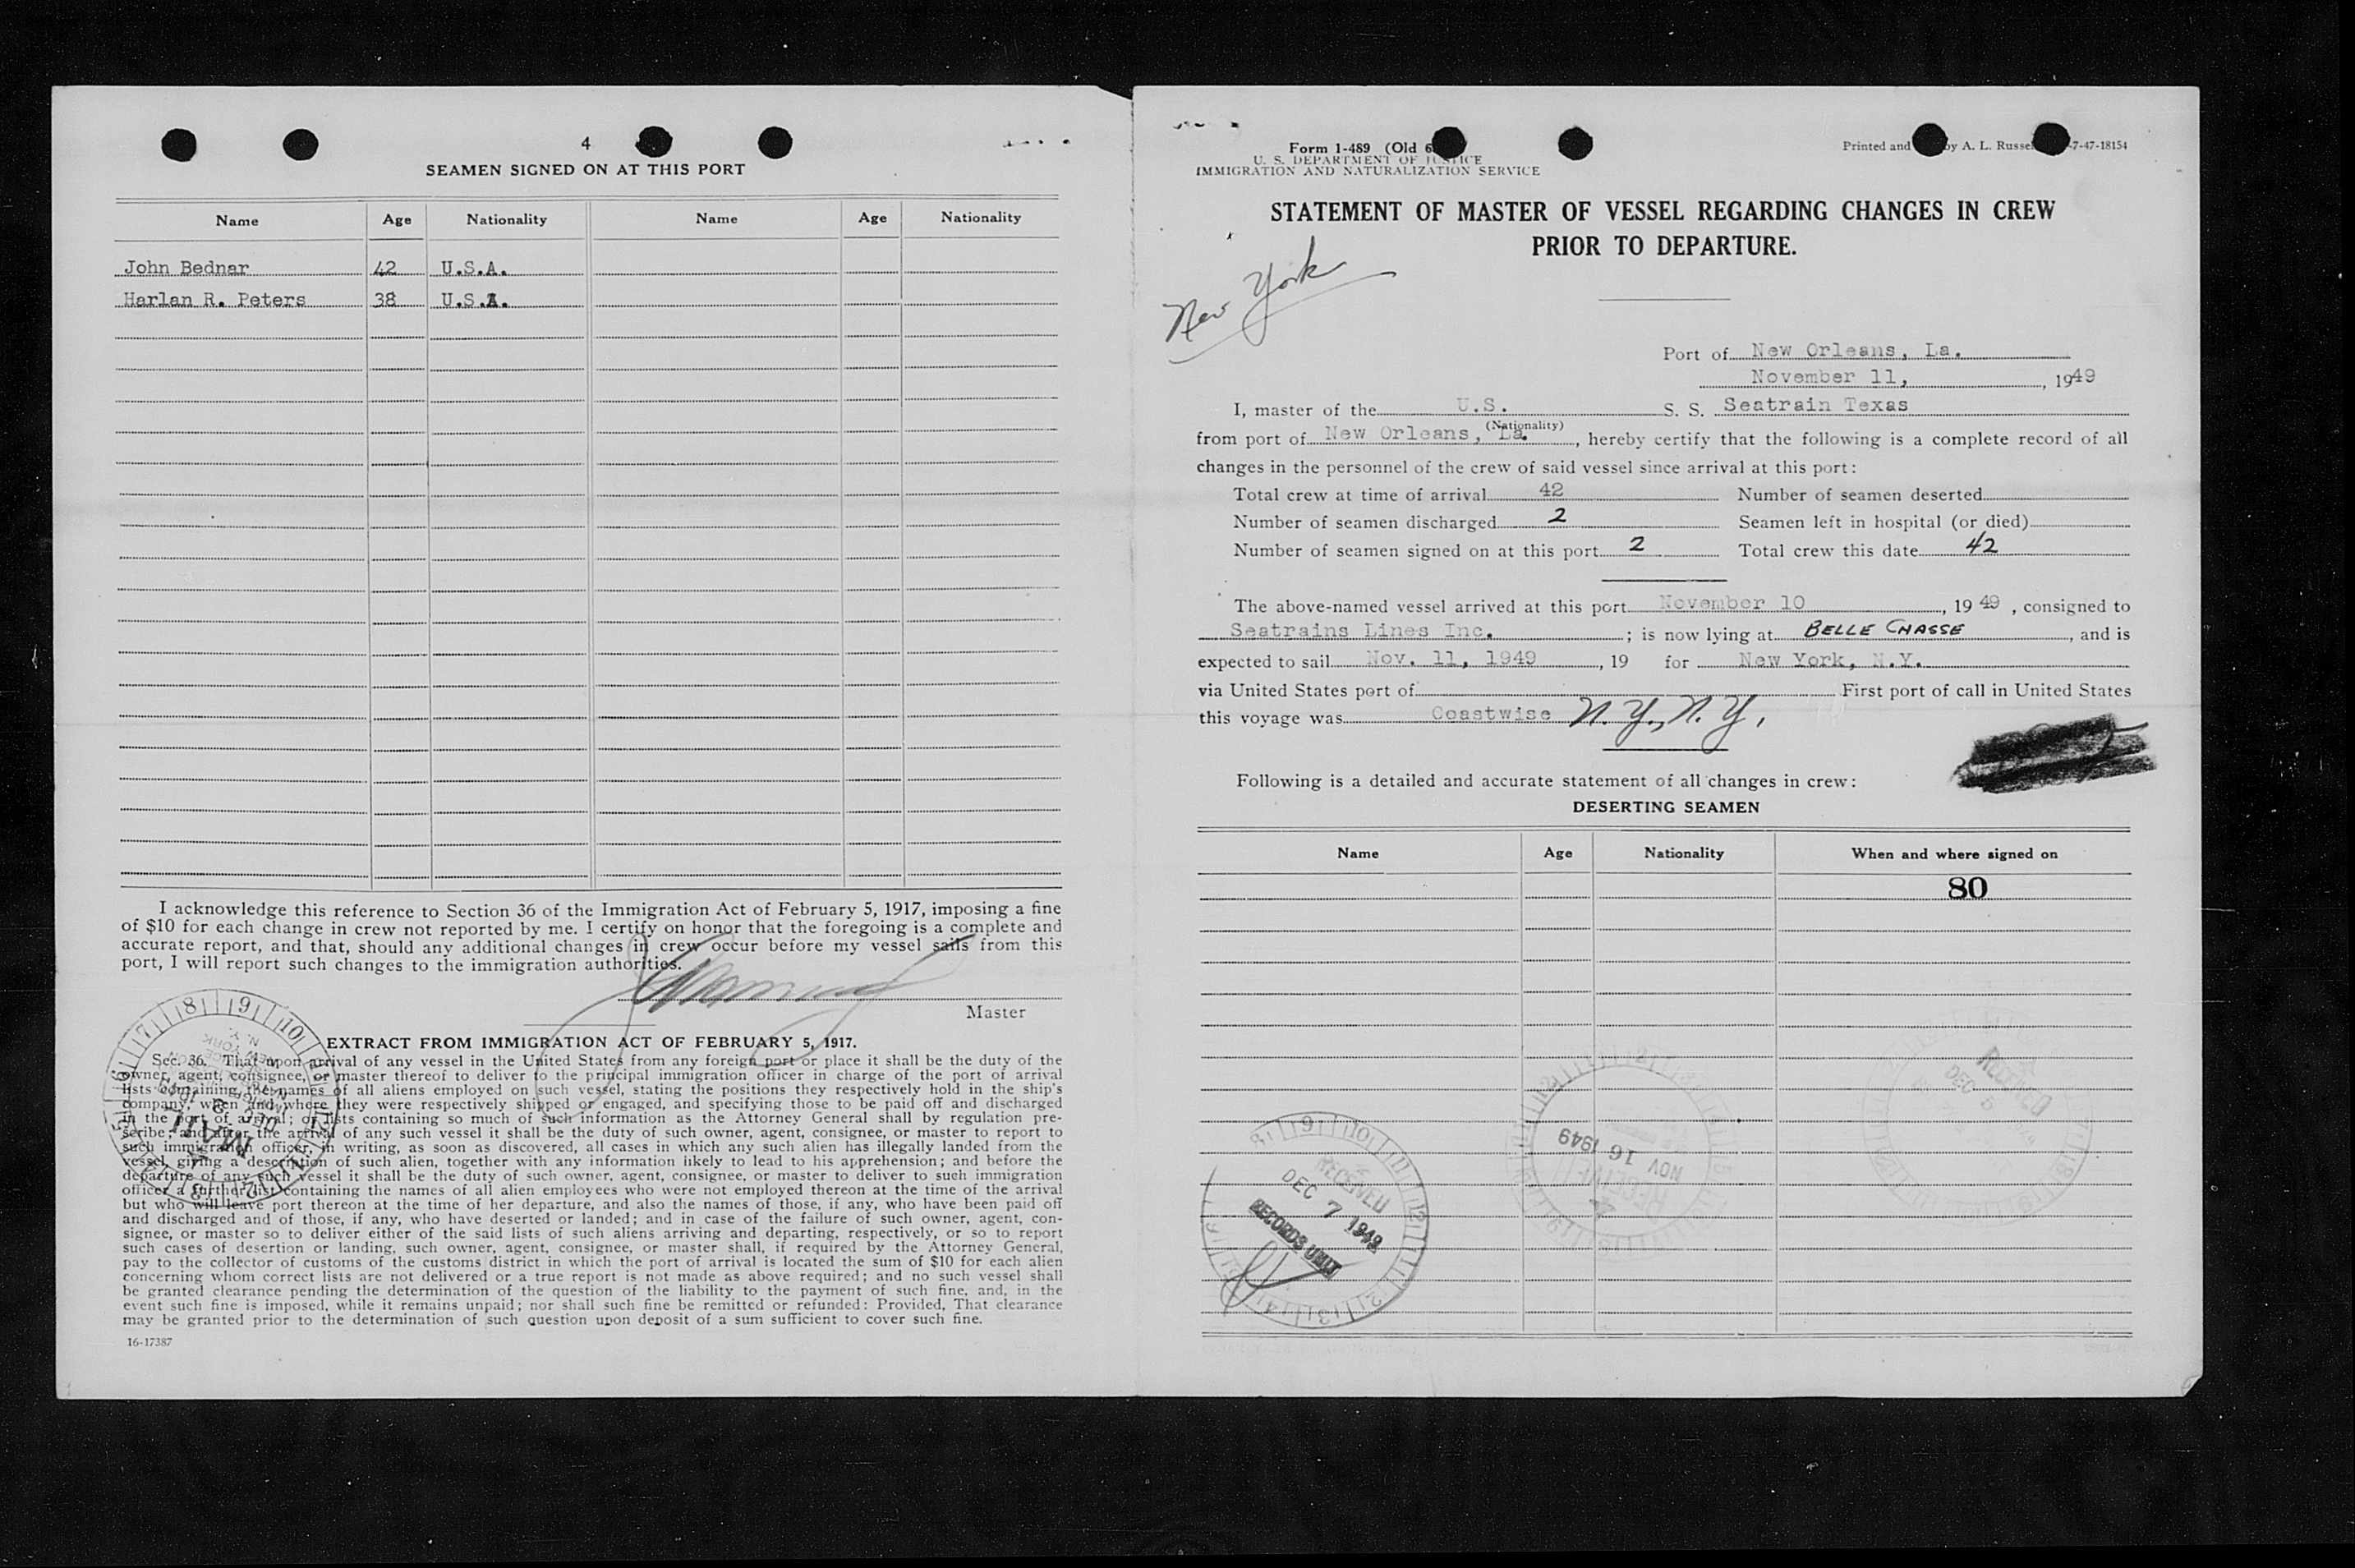 4
SEAMEN SIGNED ON AT THIS PORT
Name Age Nationality Name Age Nationality
John Bednar 42 U.S.A.
Harlan R. Peters 38 U.S.A.
I acknowledge this reference to Section 36 of the Immigration Act of February 5, 1917, imposing a fine
of $10 for each change in crew not reported by me. I certify on honor that the foregoing is a complete and
accurate report, and that, should any additional changes in crew occur before my vessel sails from this
port, I will report such changes to the immigration authorities.
Master
EXTRACT FROM IMMIGRATION ACT OF FEBRUARY 5, 1917.
Sec. 36. That upon arrival of any vessel in the United States from any foreign port or place it shall be the duty of the
owner, agent, consignee, or master thereof to deliver to the principal immigration officer in charge of the port of arrival
lists containing the names of all aliens employed on such vessel, stating the positions they respectively hold in the ship's
company, when and where they were respectively shipped or engaged, and specifying those to be paid off and discharged
in the port of arrival; or lists containing so much of such information as the Attorney General shall by regulation pre-
scribe; and after the arrival of any such vessel it shall be the duty of such owner, agent, consignee, or master to report to
such immigration officer, in writing, as soon as discovered, all cases in which any such alien has illegally landed from the
vessel, giving a description of such alien, together with any information likely to lead to his apprehension; and before the
departure of any such vessel it shall be the duty of such owner, agent, consignee, or master to deliver to such immigration
officer a further list containing the names of all alien employees who were not employed thereon at the time of the arrival
but who will leave port thereon at the time of her departure, and also the names of those, if any, who have been paid off
and discharged and of those, if any, who have deserted or landed; and in case of the failure of such owner, agent, con-
signee, or master so to deliver either of the said lists of such aliens arriving and departing, respectively, or so to report
such cases of desertion or landing, such owner, agent, consignee, or master shall, if required by the Attorney General,
pay to the collector of customs of the customs district in which the port of arrival is located the sum of $10 for each alien
concerning whom correct lists are not delivered or a true report is not made as above required; and no such vessel shall
be granted clearance pending the determination of the question of the liability to the payment of such fine, and, in the
event such fine is imposed, while it remains unpaid; nor shall such fine be remitted or refunded: Provided, That clearance
may be granted prior to the determination of such question upon deposit of a sum sufficient to cover such fine.
16-17387
Form 1-489 (Old 6
U. S. DEPARTMENT OF JUSTICE
IMMIGRATION AND NATURALIZATION SERVICE
Printed and by A. L. Russe 7-47-18154
STATEMENT OF MASTER OF VESSEL REGARDING CHANGES IN CREW
PRIOR TO DEPARTURE.
New York
Port of New Orleans, La.
November 11, , 1949
I, master of the U.S. S. S. Seatrain Texas
(Nationality)
from port of New Orleans, La. , hereby certify that the following is a complete record of all
changes in the personnel of the crew of said vessel since arrival at this port:
Total crew at time of arrival 42 Number of seamen deserted
Number of seamen discharged 2 Seamen left in hospital (or died)
Number of seamen signed on at this port 2 Total crew this date 42
The above-named vessel arrived at this port November 10 , 19 49 , consigned to
Seatrains Lines Inc. ; is now lying at BELLE CHASSE , and is
expected to sail Nov. 11, 1949 , 19 for New York, N.Y.
via United States port of First port of call in United States
this voyage was Coastwise N.Y., N.Y,
Following is a detailed and accurate statement of all changes in crew:
DESERTING SEAMEN
Name Age Nationality When and where signed on
80
RECEIVED
DEC 7 1949
RECORDS UNIT
NOV 16 1949
RECEIVED
RECEIVED
DEC 5